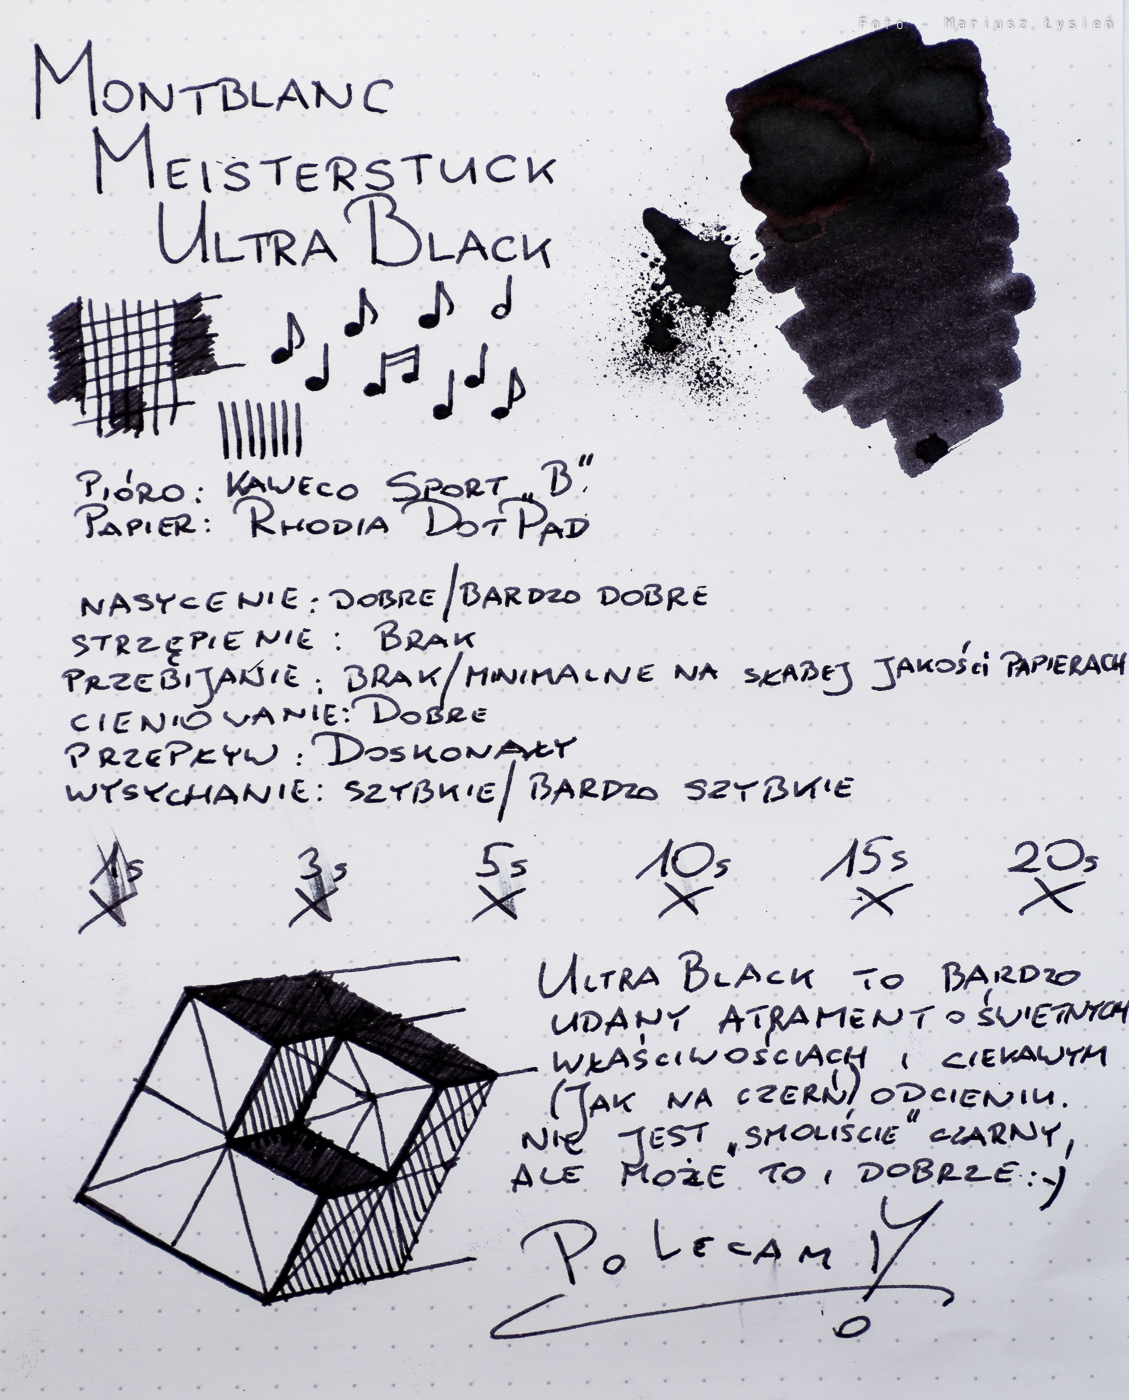 Foto - Mariusz Łysień
MONTBLANC
MEISTERSTUCK
ULTRA BLACK
PIÓRO: KAWECO SPORT „B”
PAPIER: RHODIA DOTPAD
NASYCENIE: DOBRE/BARDZO DOBRE
STRZĘPIENIE: BRAK
PRZEBIJANIE: BRAK/MINIMALNE NA SŁABEJ JAKOŚCI PAPIERACH
CIENIOWANIE: DOBRE
PRZEPŁYW: DOSKONAŁY
WYSYCHANIE: SZYBKIE/BARDZO SZYBKIE
1s 3s 5s 10s 15s 20s
ULTRA BLACK TO BARDZO
UDANY ATRAMENT O ŚWIETNYCH
WŁAŚCIWOŚCIACH I CIEKAWYM
(JAK NA CZERŃ) ODCIENIU.
NIE JEST „SMOLIŚCIE” CZARNY,
ALE MOŻE TO I DOBRZE :-)
POLECAM!